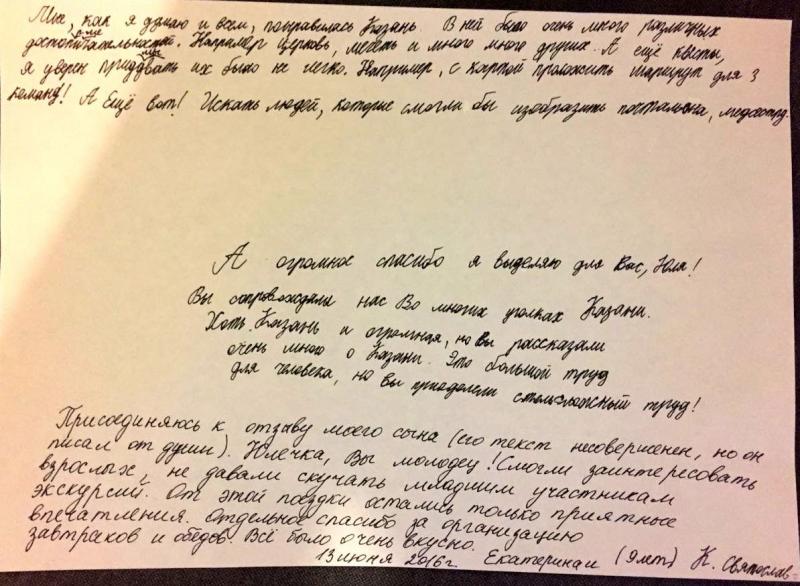 Мне, как я думаю и всем, понравилась Казань. В ней было очень много различных
достопримечательностей. Например церковь, мечеть и много много других. А ещё квесты,
я уверен придумывать их было не легко. Например, с картой проложить маршрут для 3
команд! А Ещё вот! Искать людей, которые смогли бы изобразить почтальона,
А огромное спасибо я выделяю для Вас, Юля!
Вы сопровождали нас Во многих уголках Казани.
Хоть Казань и огромная, но Вы рассказали
очень много о Казани. Это большой труд
для человека, но вы преодолели столь сложный труд!
Присоединяюсь к отзыву моего сына (его текст несовершенен, но он
писал от души). Юлечка, Вы молодец! Смогли заинтересовать
взрослых, не давали скучать младшим участникам
экскурсий. От этой поездки остались только приятные
впечатления. Отдельное спасибо за организацию
завтраков и обедов. Всё было очень вкусно.
13 июня 2016г. Екатерина и (9 лет) К. Святослав